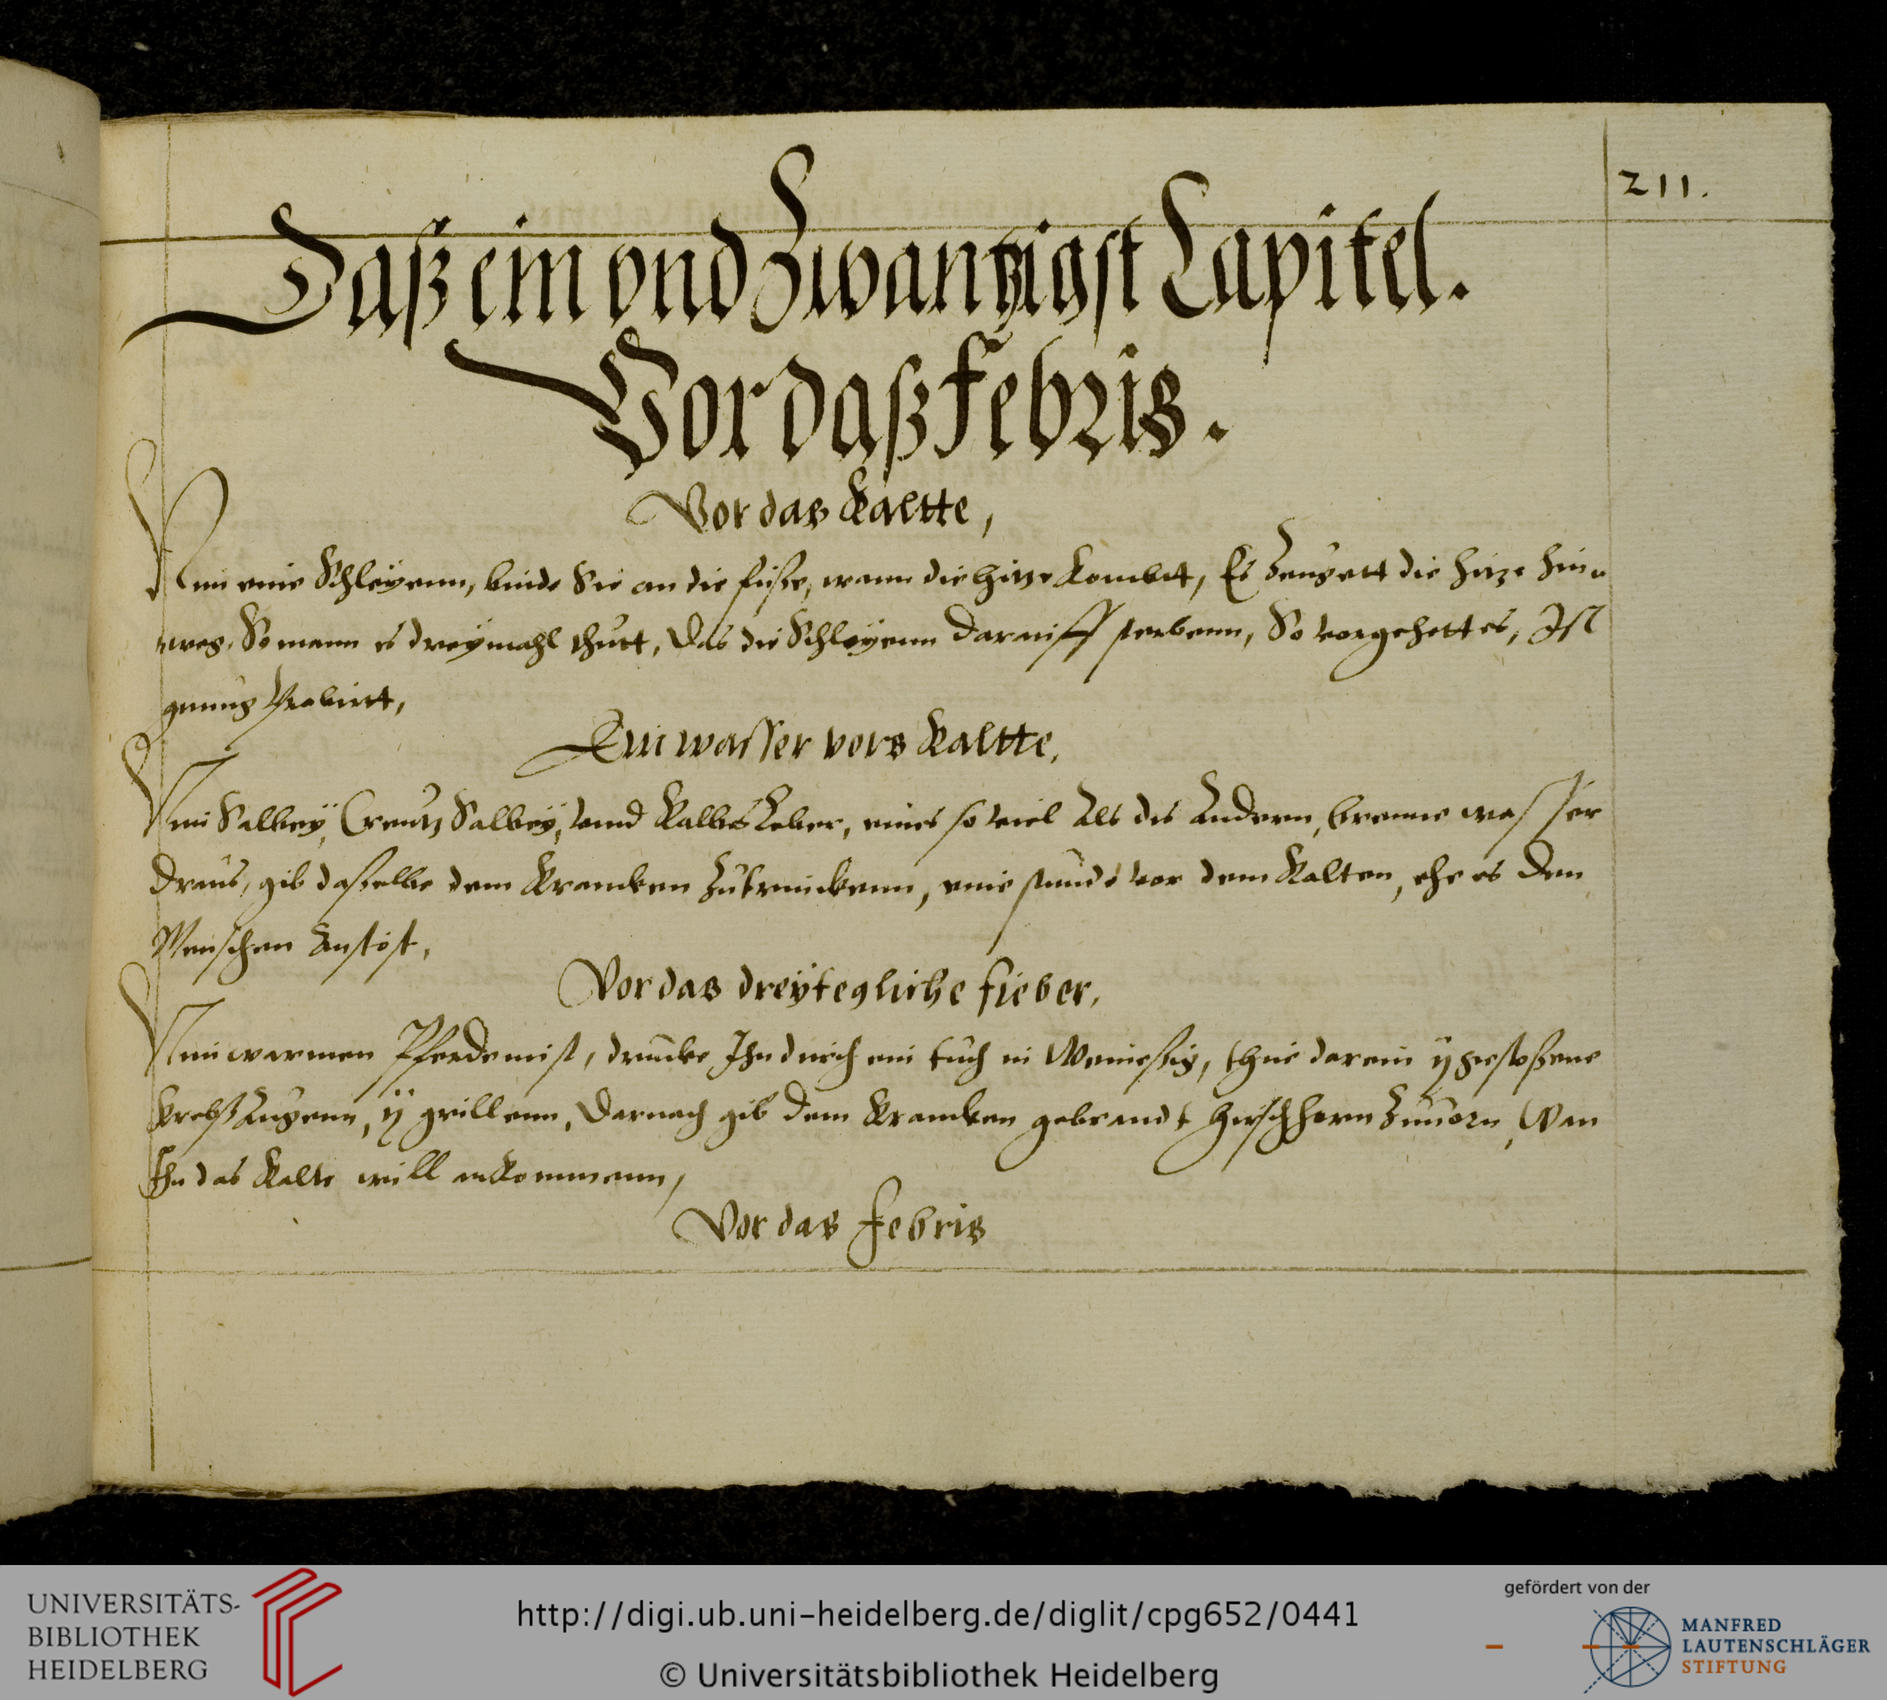 211.
Daß ein vnd Zwantzigst Capitel.
Vor daß Febris.
Vor das Kaltte,
Nim eine Schleyenn, binde Sie an die füsse, wann die hitze Kombtt, Es Zeugett die hitze hin-
weg. So mann es dreymahl thutt, das die Schleyenn darauff sterbenn, So vorgehett es, Ist
genug Probirtt,
Ein wasser vors Kaltte.
Nim Salbey, Creutz Salbey, vnnd Kalbs Leber, eines so viel Als des Andern, brenne wasser
draus, gib dasselbe dem Krancken Zutrinckenn, eine stunde vor dem Kalten, ehe es den
Menschen Anstöst,
Vor das dreytegliche fieber,
Nim warmen Pferdemist, drucke Ihn durch ein tuch in Weinessig, thue darein ij gestossene
Krebß Augenn, ij grillenn, darnach gib dem Krancken gebrandt hirschhorn Zuuorn, Wan
Ihn das Kalte will ankommenn,
Vor das febris
UNIVERSITÄTS-
BIBLIOTHEK
HEIDELBERG
http://digi.ub.uni-heidelberg.de/diglit/cpg652/0441
© Universitätsbibliothek Heidelberg
gefördert von der
MANFRED
LAUTENSCHLÄGER
STIFTUNG